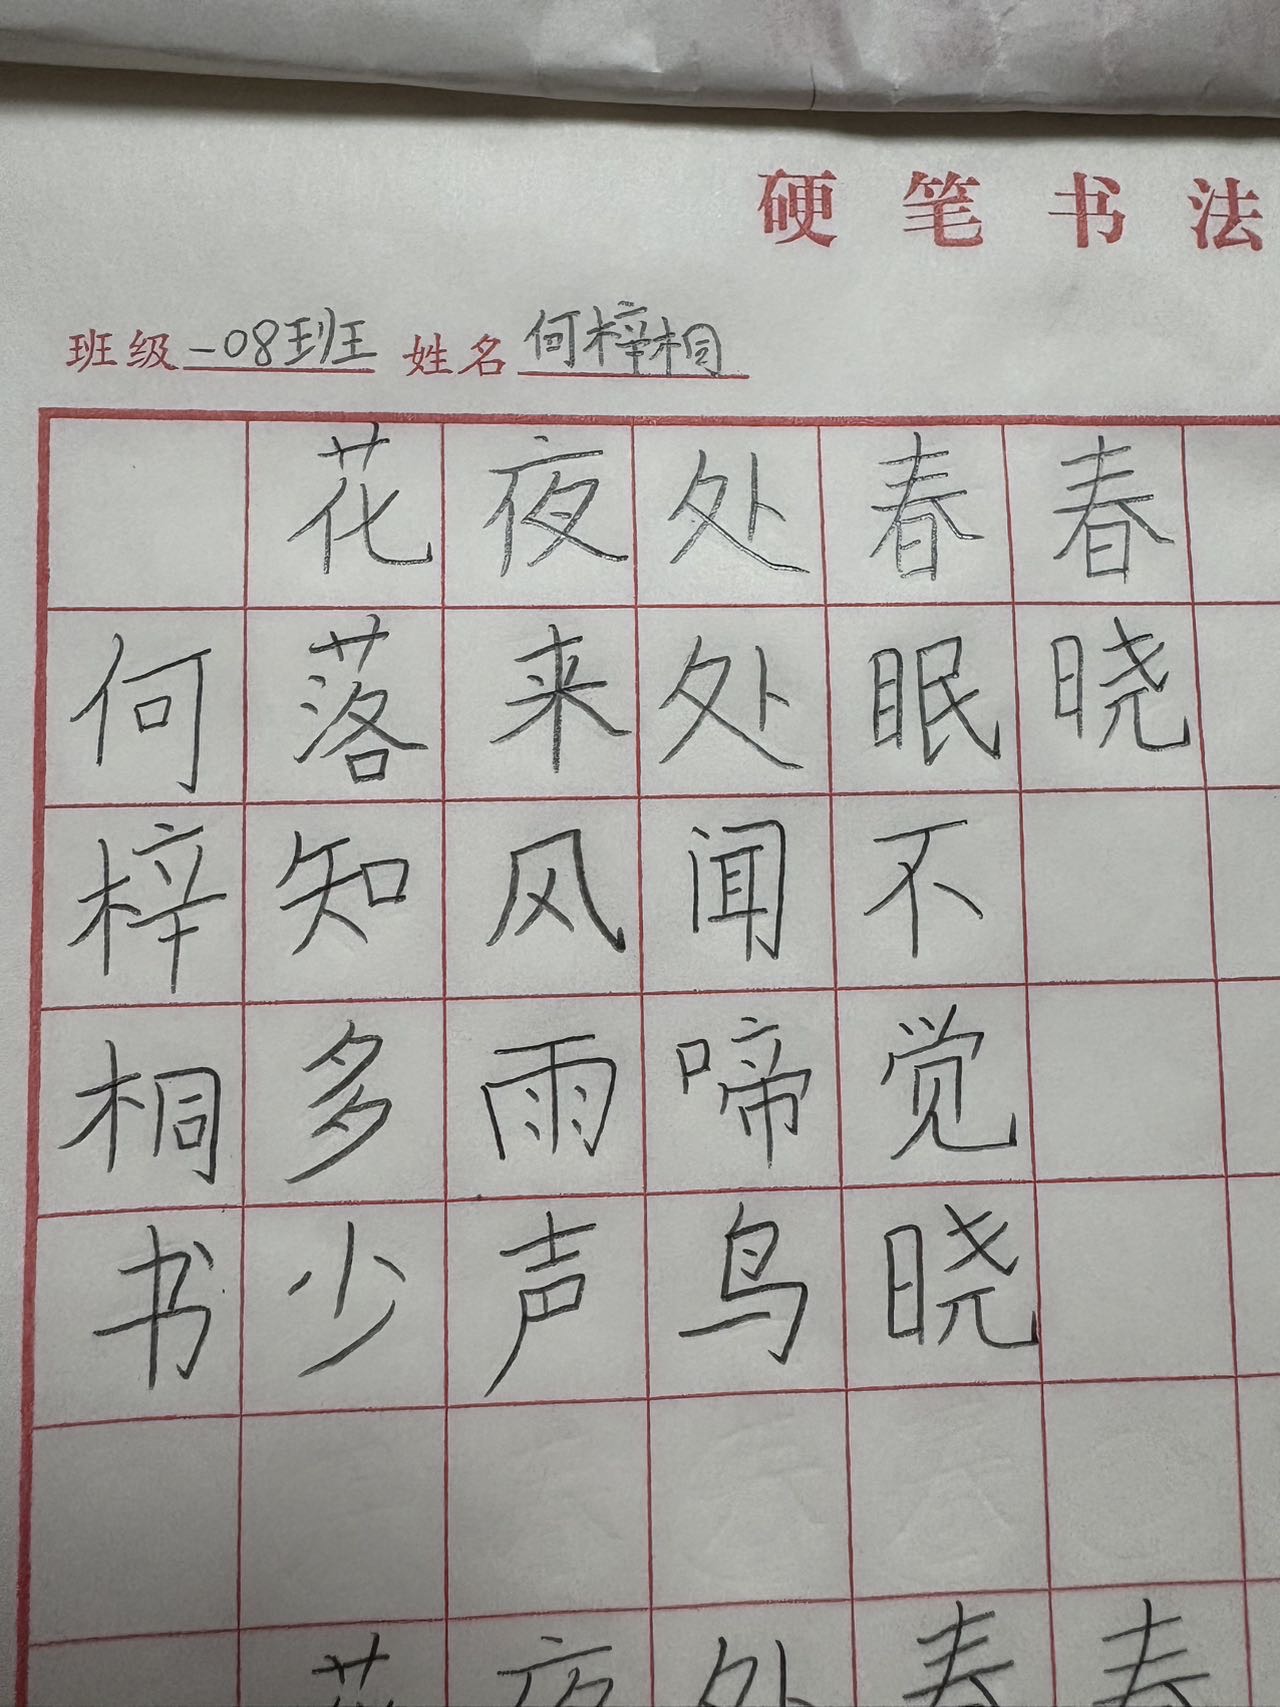 硬笔书法
班级 一08班 姓名 何梓桐
春晓
春眠不觉晓
处处闻啼鸟
夜来风雨声
花落知多少
何梓桐书
春
春
处
夜
花